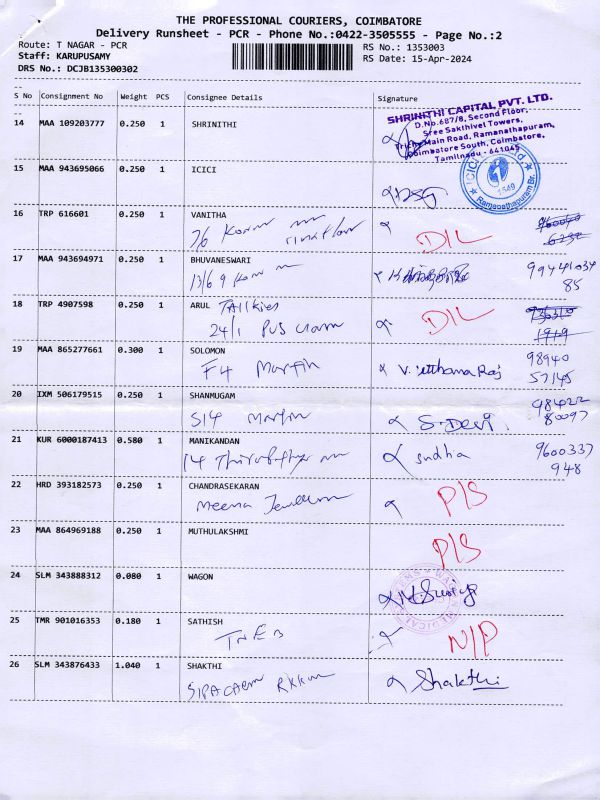 THE PROFESSIONAL COURIERS, COIMBATORE
Delivery Runsheet - PCR - Phone No.:0422-3505555 - Page No.:2
Route: T NAGAR - PCR RS No.: 1353003
Staff: KARUPUSAMY RS Date: 15-Apr-2024
DRS No.: DCJB135300302
S No Consignment No Weight PCS Consignee Details Signature
14 MAA 109203777 0.250 1 SHRINITHI
SHRINITHI CAPITAL PVT. LTD.
D.No.687/8, Second Floor,
Sree Sakthivel Towers,
Trichy Main Road, Ramanathapuram,
Coimbatore South, Coimbatore,
Tamilnadu - 641045
15 MAA 943695066 0.250 1 ICICI
Ramanathapuram Br.
1549
16 TRP 616601 0.250 1 VANITHA
D/L
17 MAA 943694971 0.250 1 BHUVANESWARI
13/6 9 99441034
85
18 TRP 4907598 0.250 1 ARUL Talkies
24/1 PVS D/L
19 MAA 865277661 0.300 1 SOLOMON 98940
F4 Marfin V. 57145
20 IXM 506179515 0.250 1 SHANMUGAM 98422
S14 Marfin S. Devi 80097
21 KUR 6000187413 0.580 1 MANIKANDAN 9600337
14 sudha 948
22 HRD 393182573 0.250 1 CHANDRASEKARAN
Meena P/S
23 MAA 864969188 0.250 1 MUTHULAKSHMI
P/S
24 SLM 343888312 0.080 1 WAGON
25 TMR 901016353 0.180 1 SATHISH
TNEB N/P
26 SLM 343876433 1.040 1 SHAKTHI
Shakthi